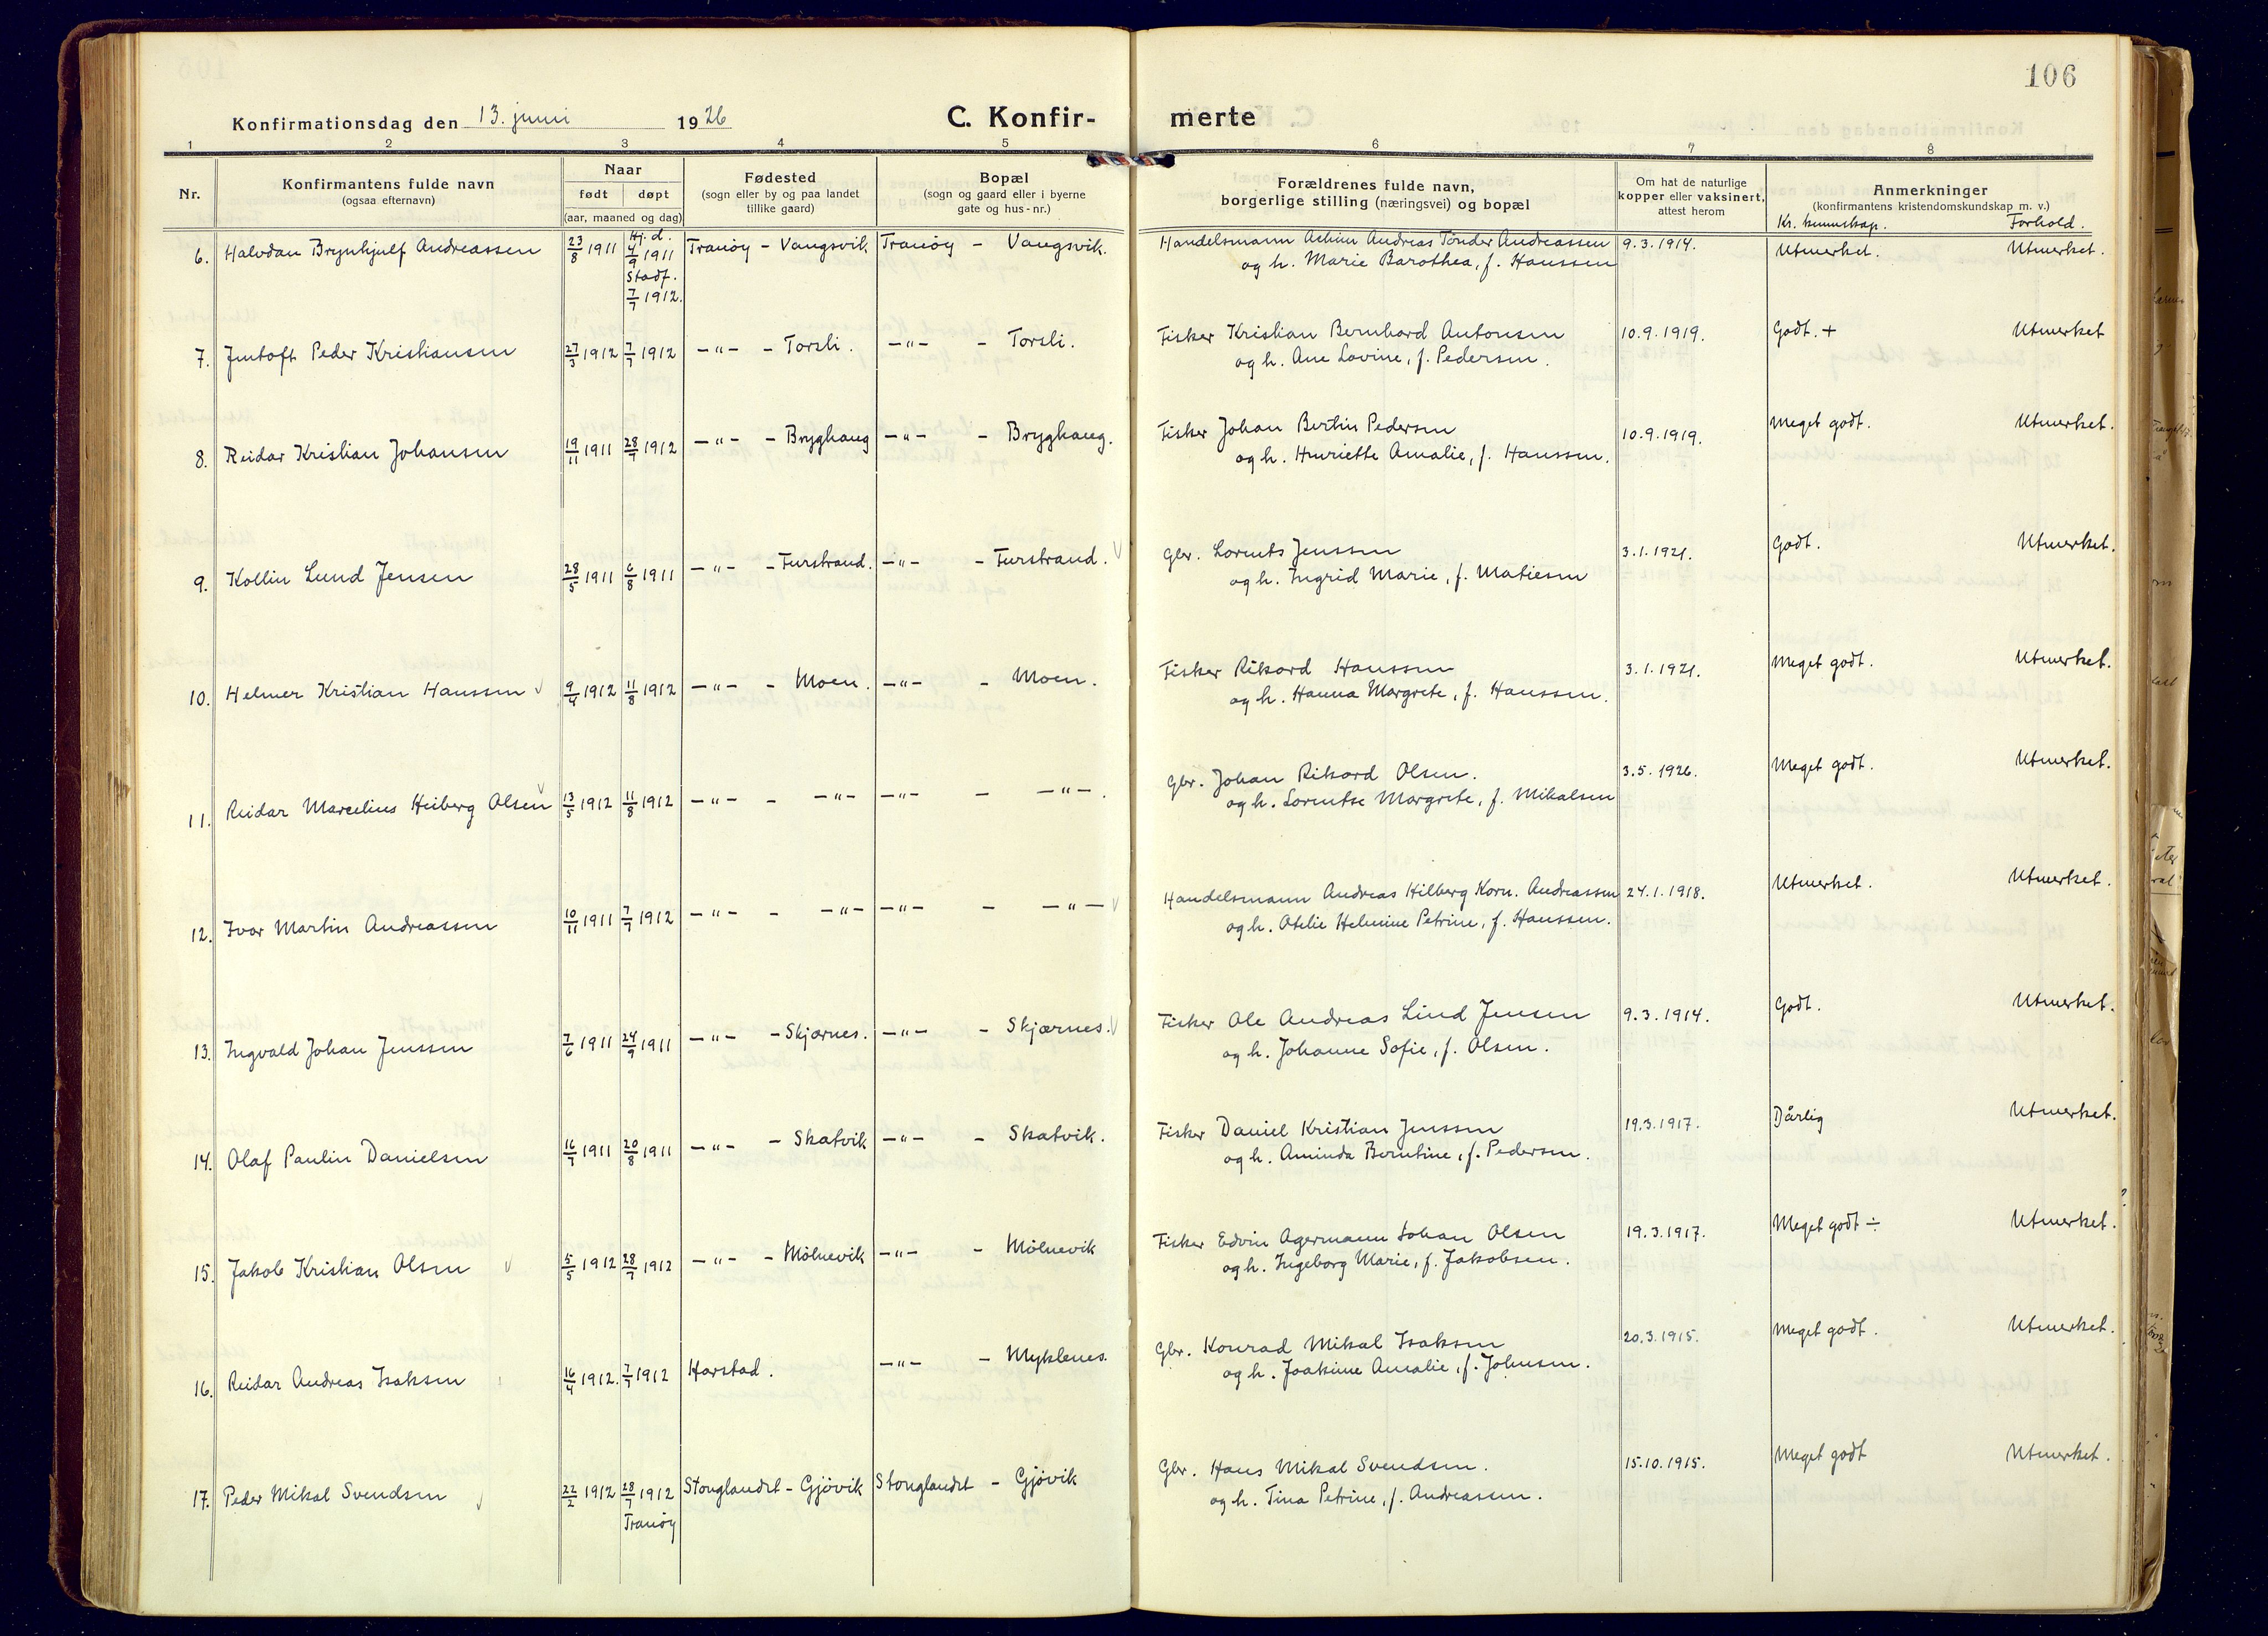 106
Konfirmationsdag den 13. juni 1926 C. Konfir- merte
1 2 3 4 5 6 7 8
Nr. Konfirmantens fulde navn (ogsaa efternavn) Naar født døpt (aar, maaned og dag) Fødested (sogn eller by og paa landet tillike gaard) Bopæl (sogn og gaard eller i byerne gate og hus-nr.) Forældrenes fulde navn, borgerlige stilling (næringsvei) og bopæl Om hat de naturlige kopper eller vaksinert, attest herom Anmerkninger (konfirmantens kristendomskundskap m. v.)
Kr. kunnskap. Forhold.
6. Halvdan Brynhjulf Andreassen 23/8 1911 Hj. d. 4/9 1911 Tranøy - Vangsvik Tranøy - Vangsvik. Handelsmann Achim Andreas Tønder Andreassen 9.3.1914. Utmerket. Utmerket.
Stadf. 7/7 1912. og h. Marie Barothea, f. Hanssen
7. Jentoft Peder Kristiansen 27/3 1912 7/7 1912 —"— - Torsli. —"— - Torsli. Fisker Kristian Bernhard Antonsen 10.9.1919. Godt. + Utmerket
og h. Ane Lovine, f. Pedersen.
8. Reidar Kristian Johansen 19/11 1911 28/7 1912 —"— - Bryghaug —"— - Bryghaug. Fisker Johan Bertin Pedersen 10.9.1919. Meget godt. Utmerket.
og h. Henriette Amalie, f. Hanssen.
9. Kollin Lund Jensen 28/5 1911 6/8 1911 —"— - Furstrand. —"— - Furstrand. Gbr. Lorents Jenssen 3.1.1921. Godt. Utmerket.
og h. Ingrid Marie, f. Matiesen
10. Helmer Kristian Hanssen 9/4 1912 11/8 1912 —"— - Moen. —"— - Moen. Fisker Rikard Hanssen 3.1.1921. Meget godt. Utmerket.
og h. Hanna Margrete, f. Hanssen.
11. Reidar Marcelius Heiberg Olsen 13/5 1912 11/8 1912 —"— - —"— —"— - —"—. Gbr. Johan Rikard Olsen. 3.5.1926. Meget godt. Utmerket.
og h. Lorentse Margrete, f. Mikalsen
12. Ivar Martin Andreassen 10/11 1911 7/7 1912 —"— - —"— —"— - —"— Handelsmann Andreas Hilberg Korn. Andreassen 24.1.1918. Utmerket. Utmerket.
og h. Otelie Helmine Petrine, f. Hanssen.
13. Ingvald Johan Jenssen 7/6 1911 24/9 1911 —"— - Skjærnes. —"— - Skjærnes. Fisker Ole Andreas Lind Jensen 9.3.1914. Godt. Utmerket.
og h. Johanne Sofie, f. Olsen.
14. Olaf Paulin Danielsen 16/7 1911 20/8 1911 —"— - Skatvik —"— - Skatvik. Fisker Daniel Kristian Jenssen 19.3.1917. Dårlig Utmerket.
og h. Aminda Berntine, f. Pedersen.
15. Jakob Kristian Olsen 5/5 1912 28/7 1912 —"— - Mølnevik —"— - Mølnevik Fisker Edvin Agermann Johan Olsen 19.3.1917. Meget godt ÷ Utmerket.
og h. Ingeborg Marie, f. Jakobsen.
16. Reidar Andreas Isaksen 16/4 1912. 7/7 1912 Harstad. —"— - Myklenes. Gbr. Konrad Mikal Isaksen 20.3.1915. Meget godt. Utmerket.
og h. Joakime Amalie, f. Johnsen.
17. Peder Mikal Svendsen 22/2 1912 28/7 1912 Stonglandet - Gjøvik Stonglandet - Gjøvik Gbr. Hans Mikal Svendsen. 15.10.1915. Meget godt Utmerket.
Tranøy og h. Tina Petrine, f. Andreassen.